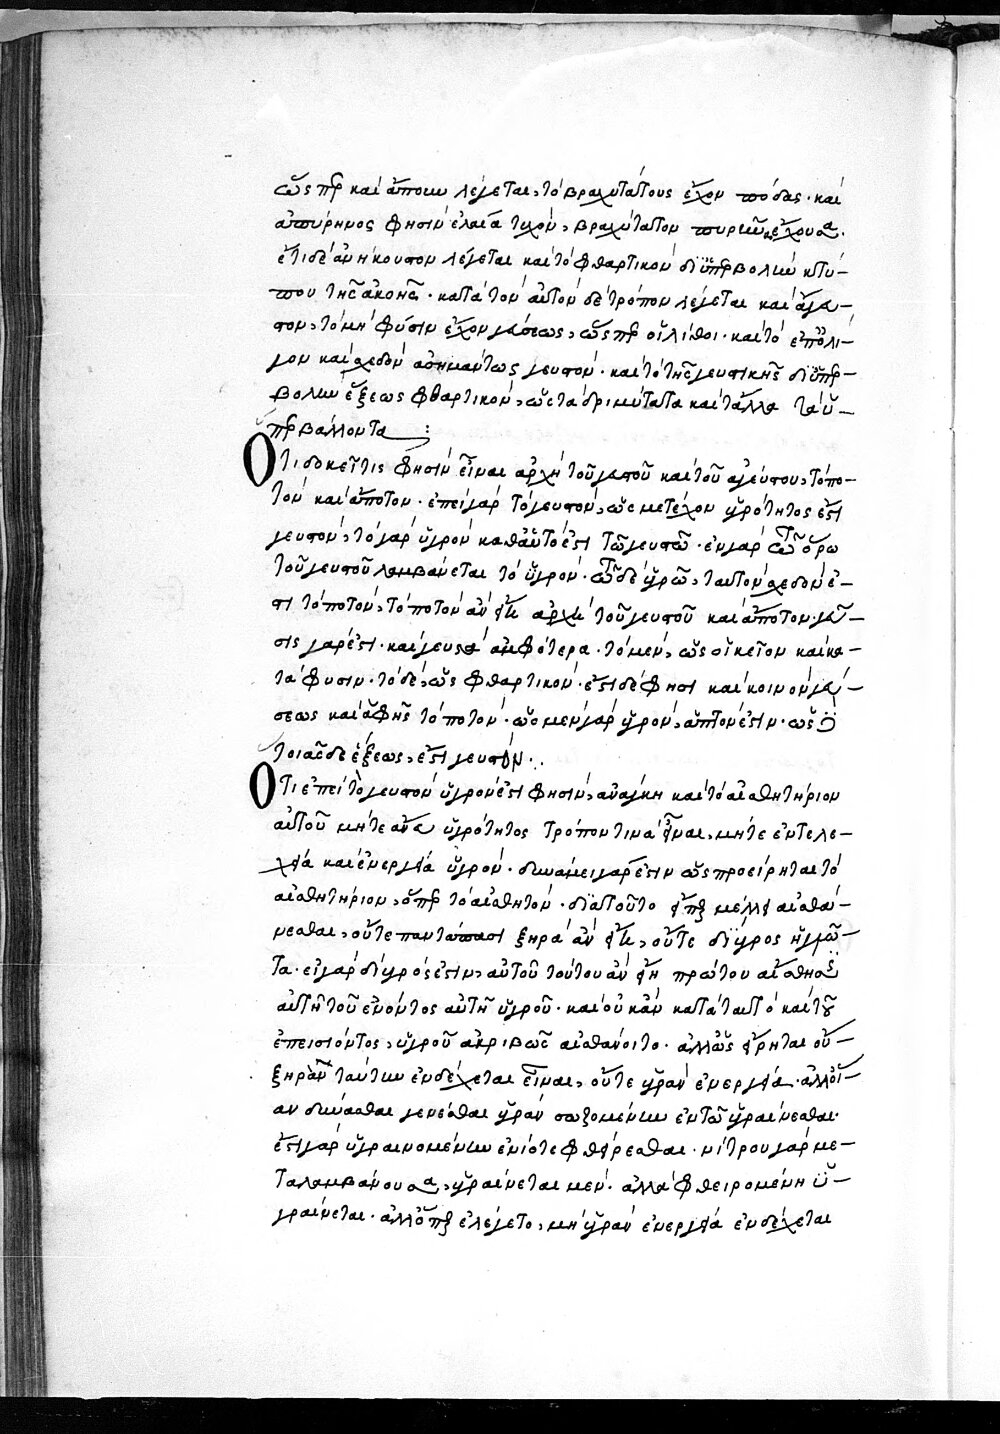 ὥσπερ καὶ ἄπουν λέγεται, τὸ βραχυτάτους ἔχον πόδας· καὶ
ἀπύρηνος φησὶν ἐλαία τυχὸν, βραχύτατον πυρῆνα ἔχουσα.
ἔτι δὲ ἀνήκουστον λέγεται καὶ τὸ φθαρτικὸν δι' ὑπερβολὴν κτύ-
που τῆς ἀκοῆς· κατὰ τὸν αὐτὸν δὲ τρόπον λέγεται καὶ ἄγευ-
στον, τὸ μὴ φύσιν ἔχον γεύσεως, ὥσπερ οἱ λίθοι· καὶ τὸ ἐπ' ὀλί-
γον καὶ σχεδὸν ἀσημάντως γευστόν· καὶ τὸ τῆς γευστικῆς δι' ὑπερ-
βολὴν ἕξεως φθαρτικὸν, ὡς τὰ δριμύτατα καὶ τἄλλα τὰ ὑ-
περβάλλοντα:
Ὅτι δοκεῖ τις φησὶν εἶναι ἀρχὴ τοῦ γευστοῦ καὶ τοῦ ἀγεύστου, τὸ πο-
τὸν καὶ ἄποτον· ἐπεὶ γὰρ τὸ γευστὸν, ὡς μετέχον ὑγρότητος ἐστὶ
γευστὸν, τὸ γὰρ ὑγρὸν καθ' αὑτό ἐστι τῶ γευστῶ· ἐν γὰρ τῶ ὅρω
τοῦ γευστοῦ λαμβάνεται τὸ ὑγρόν· τῶ δὲ ὑγρῶ, ταυτὸν σχεδὸν ἐ-
στὶ τὸ ποτὸν, τὸ ποτὸν ἂν εἴη ἀρχὴ τοῦ γευστοῦ καὶ ἄποτον. γεῦ-
σις γάρ ἐστι· καὶ γευστὰ ἀμφότερα· τὸ μὲν, ὡς οἰκεῖον καὶ κα-
τὰ φύσιν· τὸ δὲ, ὡς φθαρτικόν· ἔστι δὲ φησὶ καὶ κοινὸν γεύ-
σεως καὶ ἁφῆς τὸ ποτόν· ὡς μὲν γὰρ ὑγρὸν, ἁπτόν ἐστιν· ὡς δὲ
τοιᾶσδε ἕξεως, ἐστὶ γευστόν.
Ὅτι ἐπεὶ τὸ γευστὸν ὑγρόν ἐστι φησὶν, ἀνάγκη καὶ τὸ αἰσθητήριον
αὐτοῦ μήτε ἄνευ ὑγρότητος τρόπον τινὰ εἶναι, μήτε ἐντελε-
χεία καὶ ἐνεργεία ὑγρόν· δυνάμει γάρ ἐστιν ὡς προείρηται τὸ
αἰσθητήριον, ὅπερ τὸ αἰσθητόν· διὰ τοῦτο εἴπερ μέλλει αἰσθάν-
νεσθαι, οὔτε παντάπασι ξηρὰ ἂν εἴη, οὔτε δίυγρος ἡ γλῶτ-
τα· εἰ γὰρ δίυγρός ἐστιν, αὐτοῦ τούτου ἂν εἴη πρώτου αἴσθησις
αὐτῆ τοῦ ἐνόντος αὐτῆ ὑγροῦ· καὶ οὐκ ἂν κατὰ ταυτὸ καὶ τοῦ
ἐπεισιόντος, ὑγροῦ ἀκριβῶς αἰσθάνοιτο· ἀλλ' ὡς εἴρηται οὔτε
ξηρὰν ταύτην ἐνδέχεται εἶναι, οὔτε ὑγρὰν ἐνεργεία· ἀλλ' οἵ-
αν δύνασθαι γενέσθαι ὑγρὰν σωζομένην ἐν τῶ ὑγραίνεσθαι.
ἔστι γὰρ ὑγραινομένην ἐνίοτε φθείρεσθαι· νίτρου γὰρ με-
ταλαμβάνουσα, ὑγραίνεται μέν· ἀλλὰ φθειρομένη ὑ-
γραίνεται· ἀλλ' ὅπερ ἐλέγετο, μὴ ὑγρὰν ἐνεργεία ἐνδέχεται